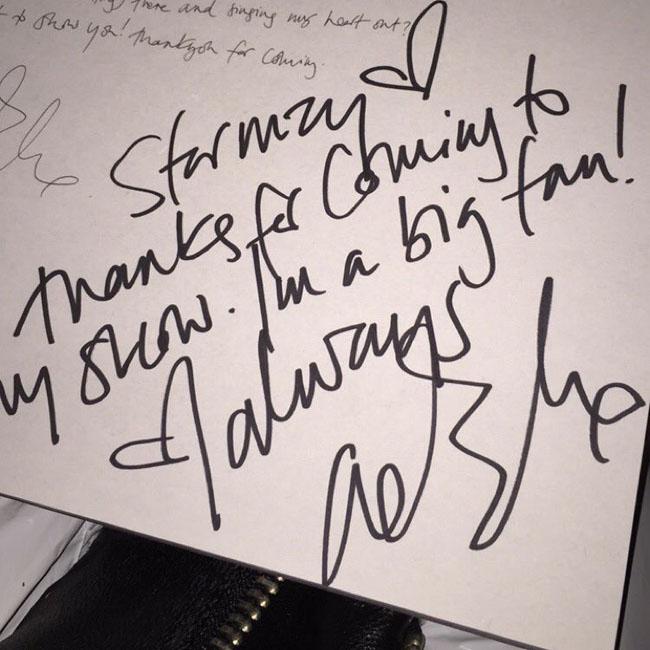 there and singing my heart out?
to show you! Thankyou for coming.
Stormzy
thanks for Coming to
my show. I'm a big fan!
always